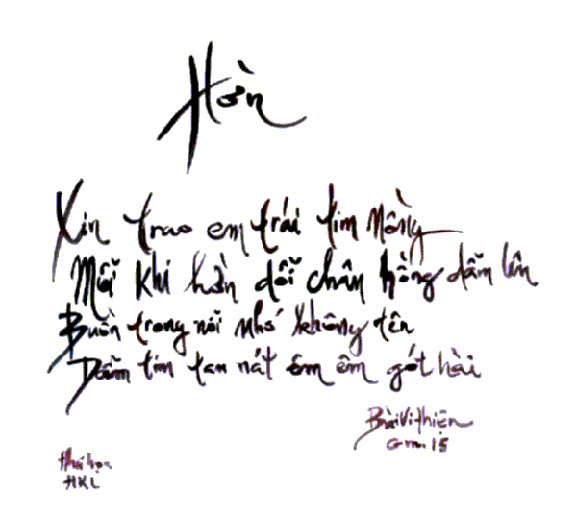 Hờn
Xin trao em trái tim nồng
Mỗi khi hờn dỗi chân hồng dẫm lên
Buồn trong nỗi nhớ không tên
Dẫm tim tan nát êm êm gót hài
Bùi Vi Thiện
15
HKL